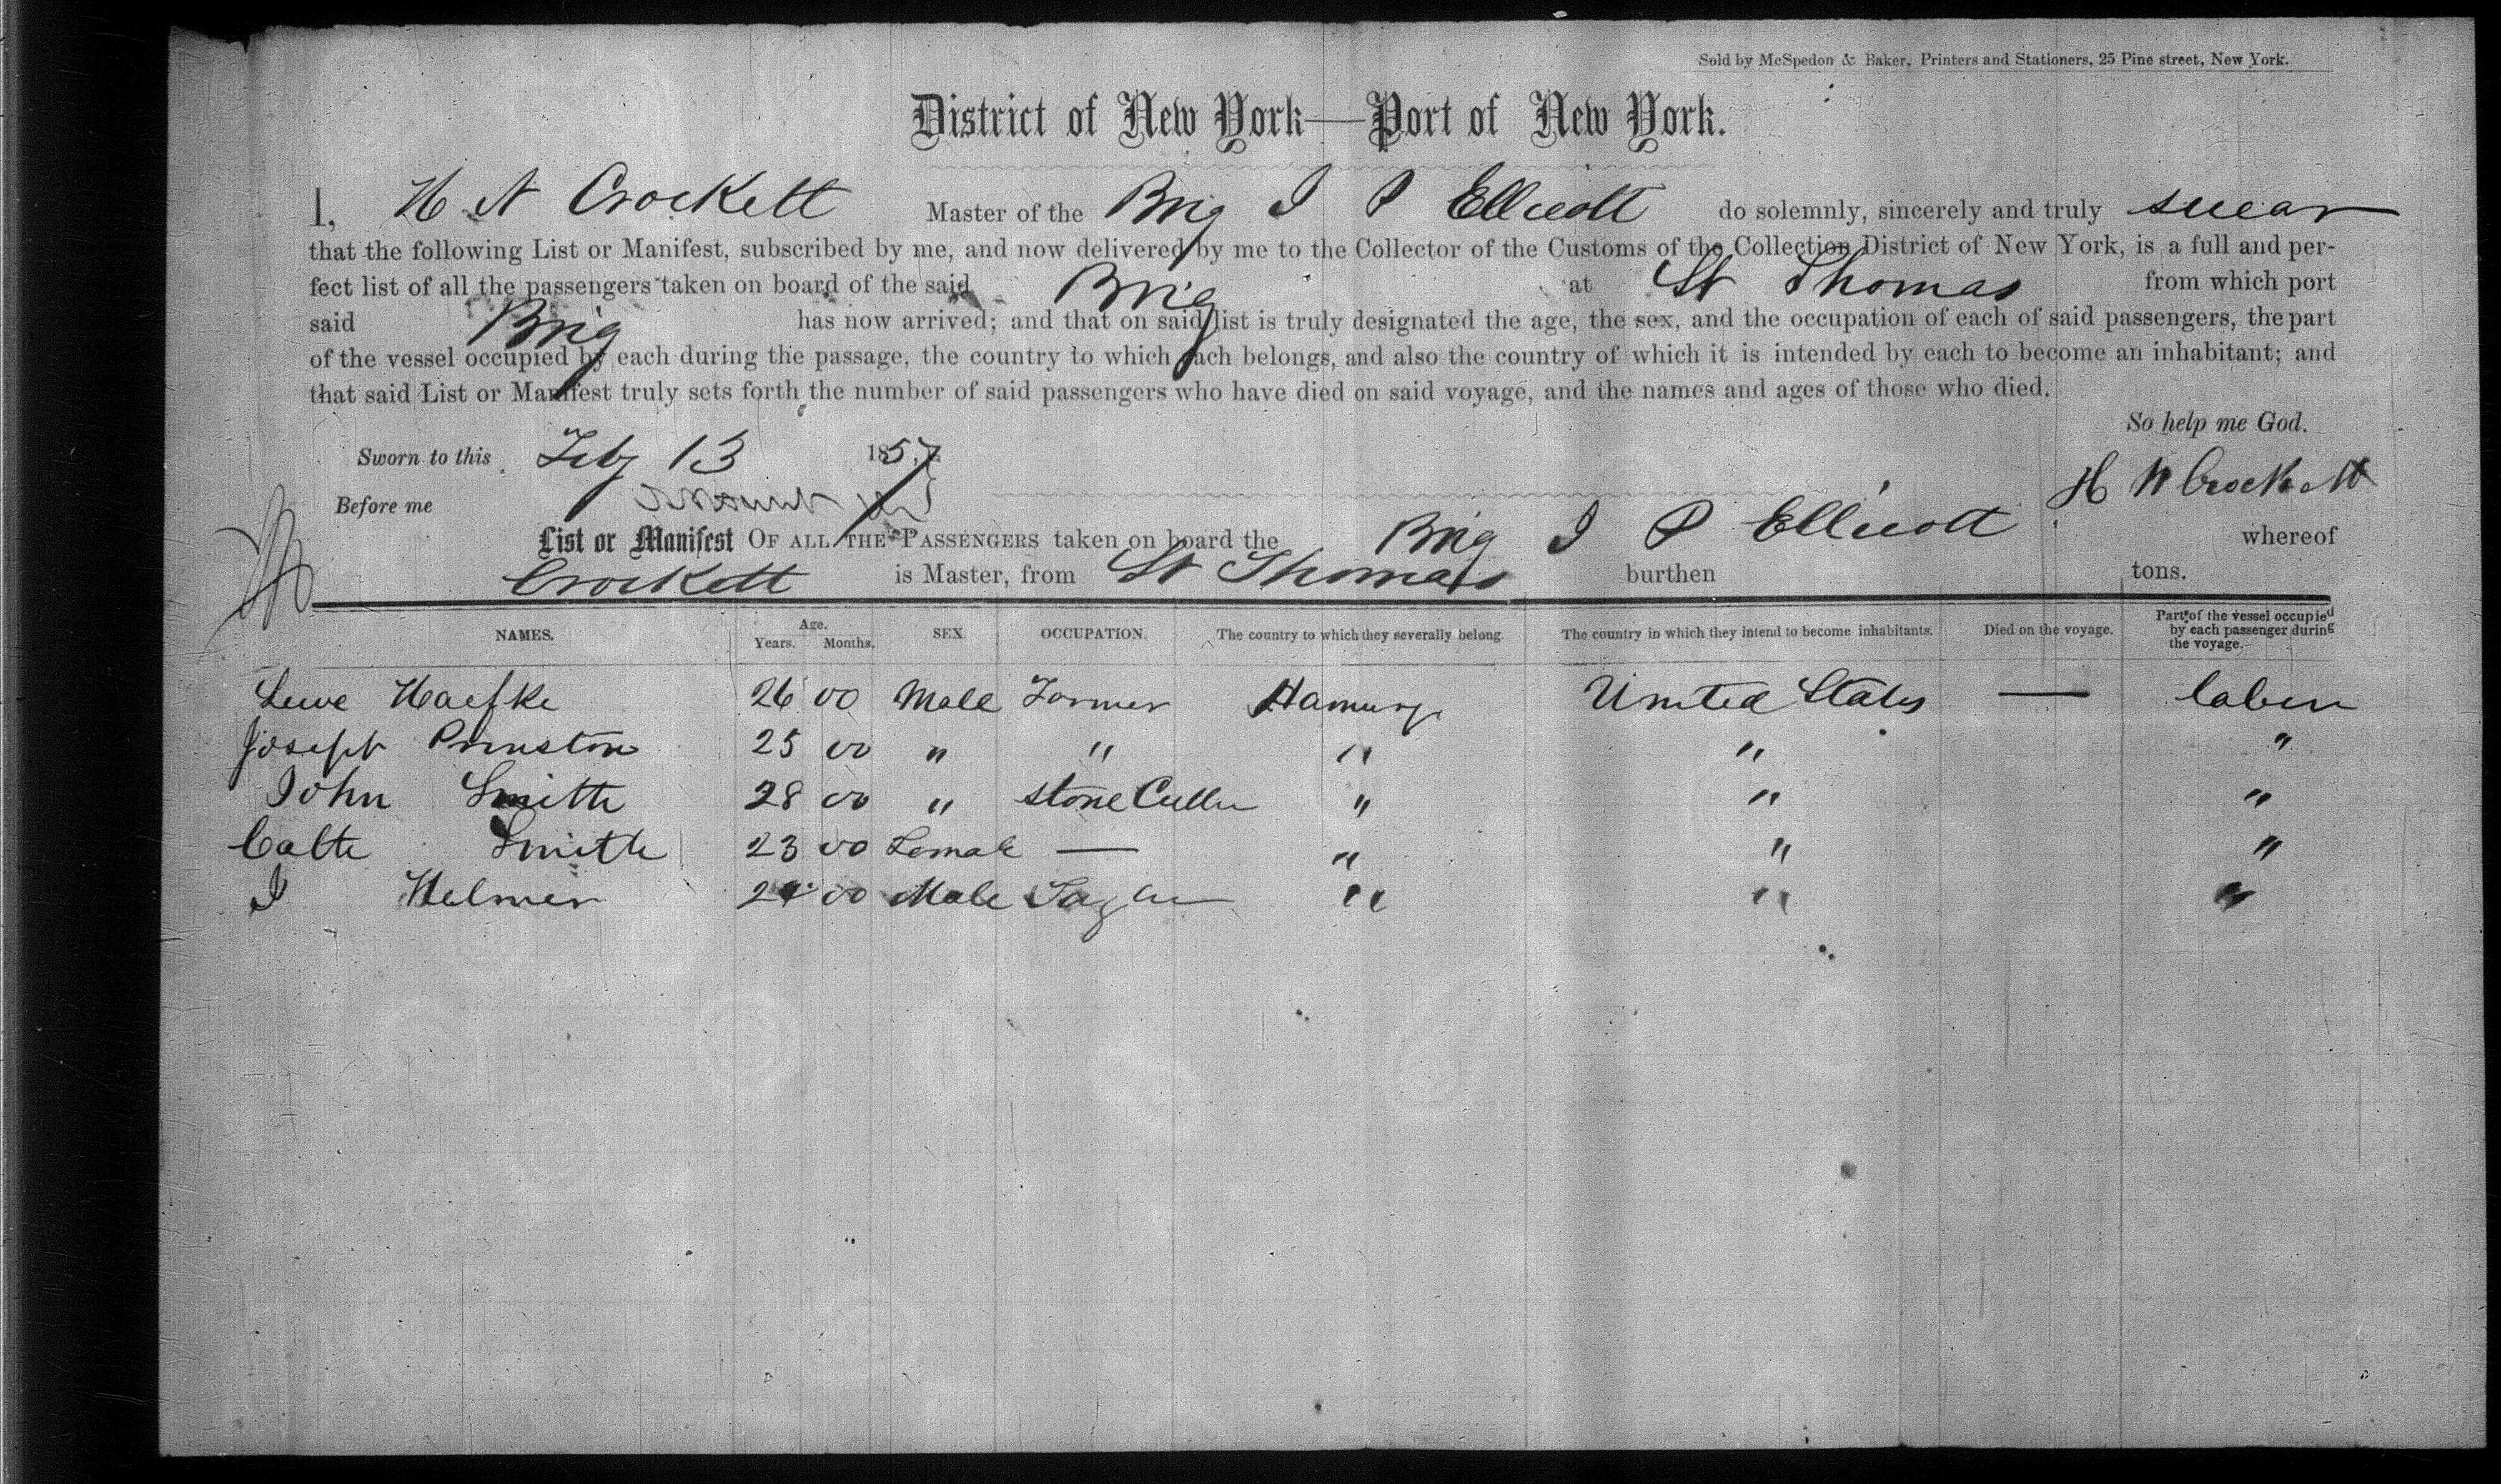 Sold by McSpedon & Baker, Printers and Stationers, 25 Pine street, New York.
District of New York—Port of New York.
I, H N Crockett Master of the Brig J P Ellicott do solemnly, sincerely and truly swear
that the following List or Manifest, subscribed by me, and now delivered by me to the Collector of the Customs of the Collection District of New York, is a full and per-
fect list of all the passengers taken on board of the said Brig at St Thomas from which port
said Brig has now arrived; and that on said list is truly designated the age, the sex, and the occupation of each of said passengers, the part
of the vessel occupied by each during the passage, the country to which each belongs, and also the country of which it is intended by each to become an inhabitant; and
that said List or Manifest truly sets forth the number of said passengers who have died on said voyage, and the names and ages of those who died.
So help me God.
Sworn to this Feby 13 1857
H N Crockett
Before me
List or Manifest OF ALL THE PASSENGERS taken on board the Brig J P Ellicott whereof
Crockett is Master, from St Thomas burthen tons.
NAMES. Age. Years. Months. SEX. OCCUPATION. The country to which they severally belong. The country in which they intend to become inhabitants. Died on the voyage. Part of the vessel occupied by each passenger during the voyage.
Luwe Haefke 26 00 Male Farmer Hamurg United States — Cabin
Joseph 25 00 " " " " "
John Smith 28 00 " Stone Cutter " " "
Smith 23 00 Female — " " "
J Helmer 24 00 Male " " "